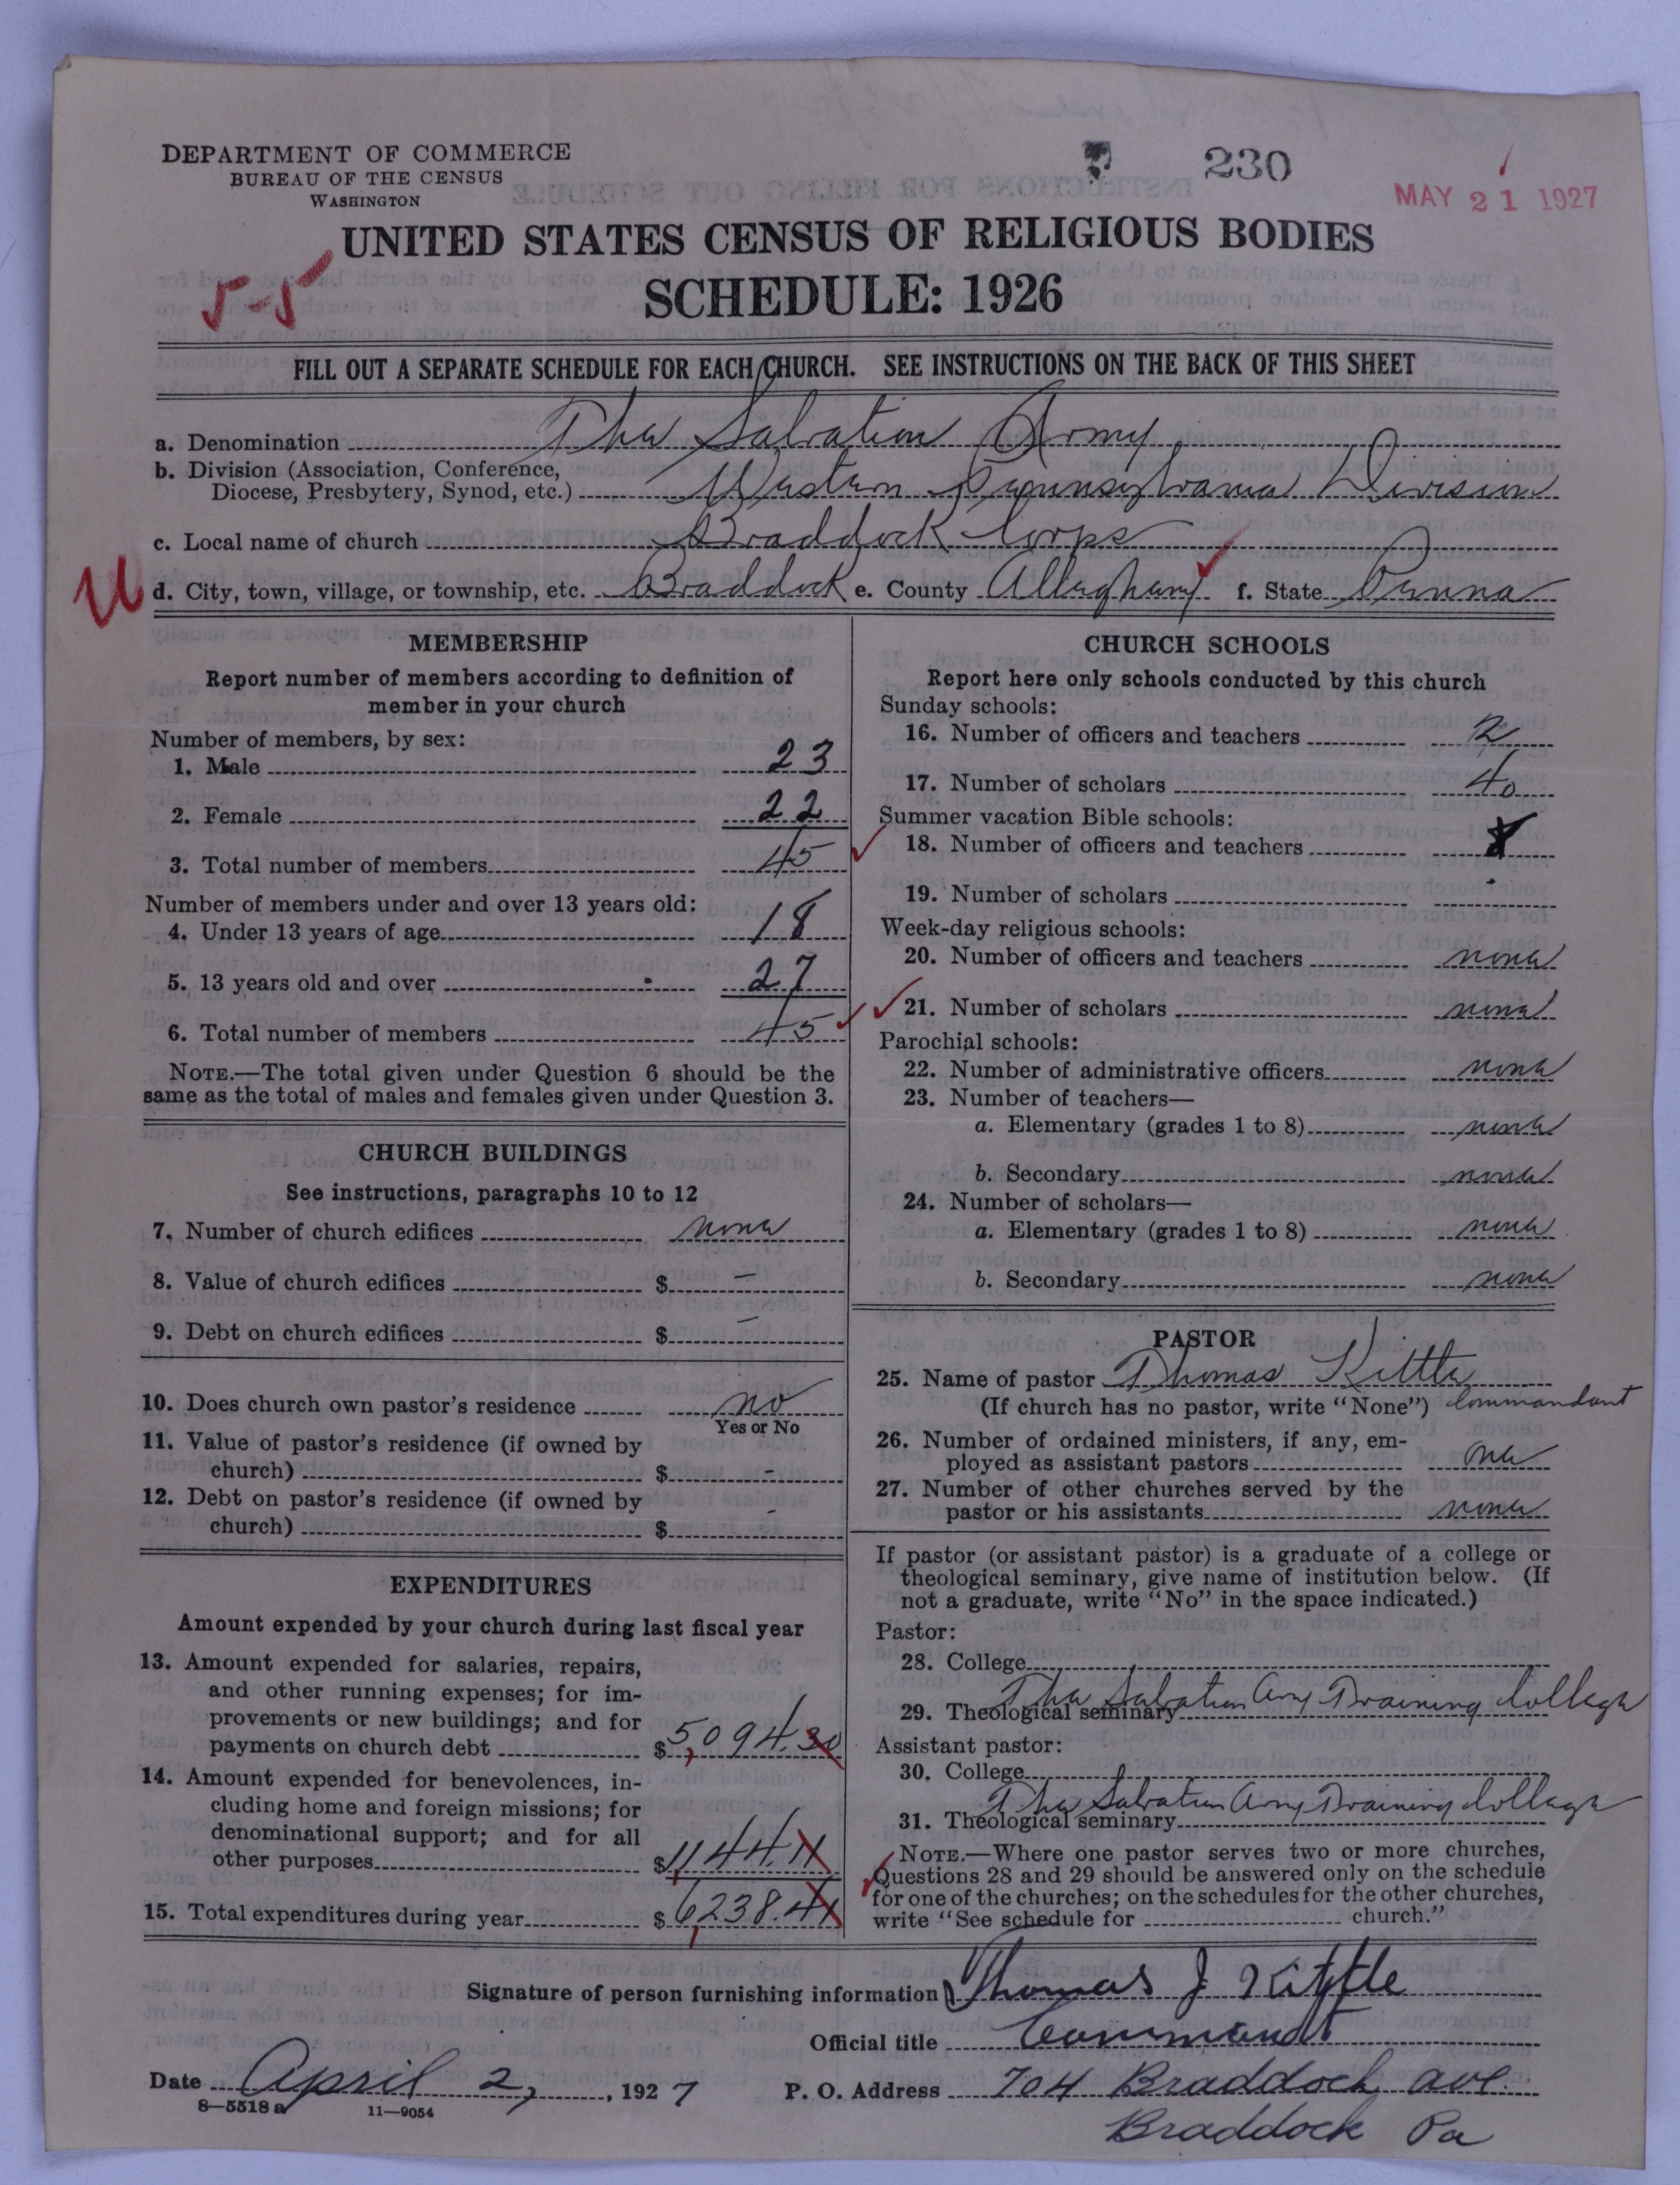 DEPARTMENT OF COMMERCE
BUREAU OF THE CENSUS
WASHINGTON
230
MAY 21 1927
UNITED STATES CENSUS OF RELIGIOUS BODIES
SCHEDULE: 1926
5-5
FILL OUT A SEPARATE SCHEDULE FOR EACH CHURCH. SEE INSTRUCTIONS ON THE BACK OF THIS SHEET
a. Denomination The Salvation Army
b. Division (Association, Conference,
Diocese, Presbytery, Synod, etc.) Western Pennsylvania Division
c. Local name of church Braddock Corps
d. City, town, village, or township, etc. Braddock e. County Allegheny f. State Penna
MEMBERSHIP
Report number of members according to definition of
member in your church
Number of members, by sex:
1. Male 23
2. Female 22
3. Total number of members 45
Number of members under and over 13 years old:
4. Under 13 years of age 18
5. 13 years old and over 27
6. Total number of members 45
NOTE.—The total given under Question 6 should be the
same as the total of males and females given under Question 3.
CHURCH BUILDINGS
See instructions, paragraphs 10 to 12
7. Number of church edifices none
8. Value of church edifices $ –
9. Debt on church edifices $ –
10. Does church own pastor's residence no
Yes or No
11. Value of pastor's residence (if owned by
church) $ -
12. Debt on pastor's residence (if owned by
church) $ -
EXPENDITURES
Amount expended by your church during last fiscal year
13. Amount expended for salaries, repairs,
and other running expenses; for im-
provements or new buildings; and for
payments on church debt $ 5,094.30
14. Amount expended for benevolences, in-
cluding home and foreign missions; for
denominational support; and for all
other purposes $ 1,144.11
15. Total expenditures during year $ 6,238.41
CHURCH SCHOOLS
Report here only schools conducted by this church
Sunday schools:
16. Number of officers and teachers 2
17. Number of scholars 40
Summer vacation Bible schools:
18. Number of officers and teachers
19. Number of scholars
Week-day religious schools:
20. Number of officers and teachers none
21. Number of scholars none
Parochial schools:
22. Number of administrative officers none
23. Number of teachers—
a. Elementary (grades 1 to 8) none
b. Secondary none
24. Number of scholars—
a. Elementary (grades 1 to 8) none
b. Secondary none
PASTOR
25. Name of pastor Thomas Kittle
(If church has no pastor, write "None") Commandant
26. Number of ordained ministers, if any, em-
ployed as assistant pastors one
27. Number of other churches served by the
pastor or his assistants none
If pastor (or assistant pastor) is a graduate of a college or
theological seminary, give name of institution below. (If
not a graduate, write "No" in the space indicated.)
Pastor:
28. College
29. Theological seminary The Salvation Army Training College
Assistant pastor:
30. College
31. Theological seminary The Salvation Army Training College
NOTE.—Where one pastor serves two or more churches,
Questions 28 and 29 should be answered only on the schedule
for one of the churches; on the schedules for the other churches,
write "See schedule for church."
Signature of person furnishing information Thomas J Kittle
Official title Commandt
Date April 2, , 1927 P. O. Address 704 Braddock Ave.
8—5518 a 11—9054
Braddock Pa